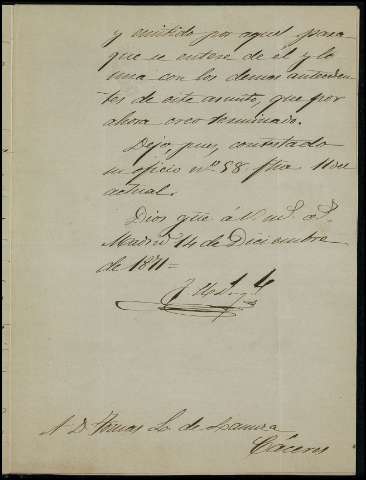 y emitido por aquel, para
que se entere de él y lo
una con los demas anteceden-
tes de este asunto, que por
ahora creo terminado.
Dejo, pues, contestado
su oficio nº 58 fha 11 del
actual.
Dios gue á V. ms. as.
Madrid 14 de Diciembre
de 1871=
A D. Tomas L. de
Cáceres